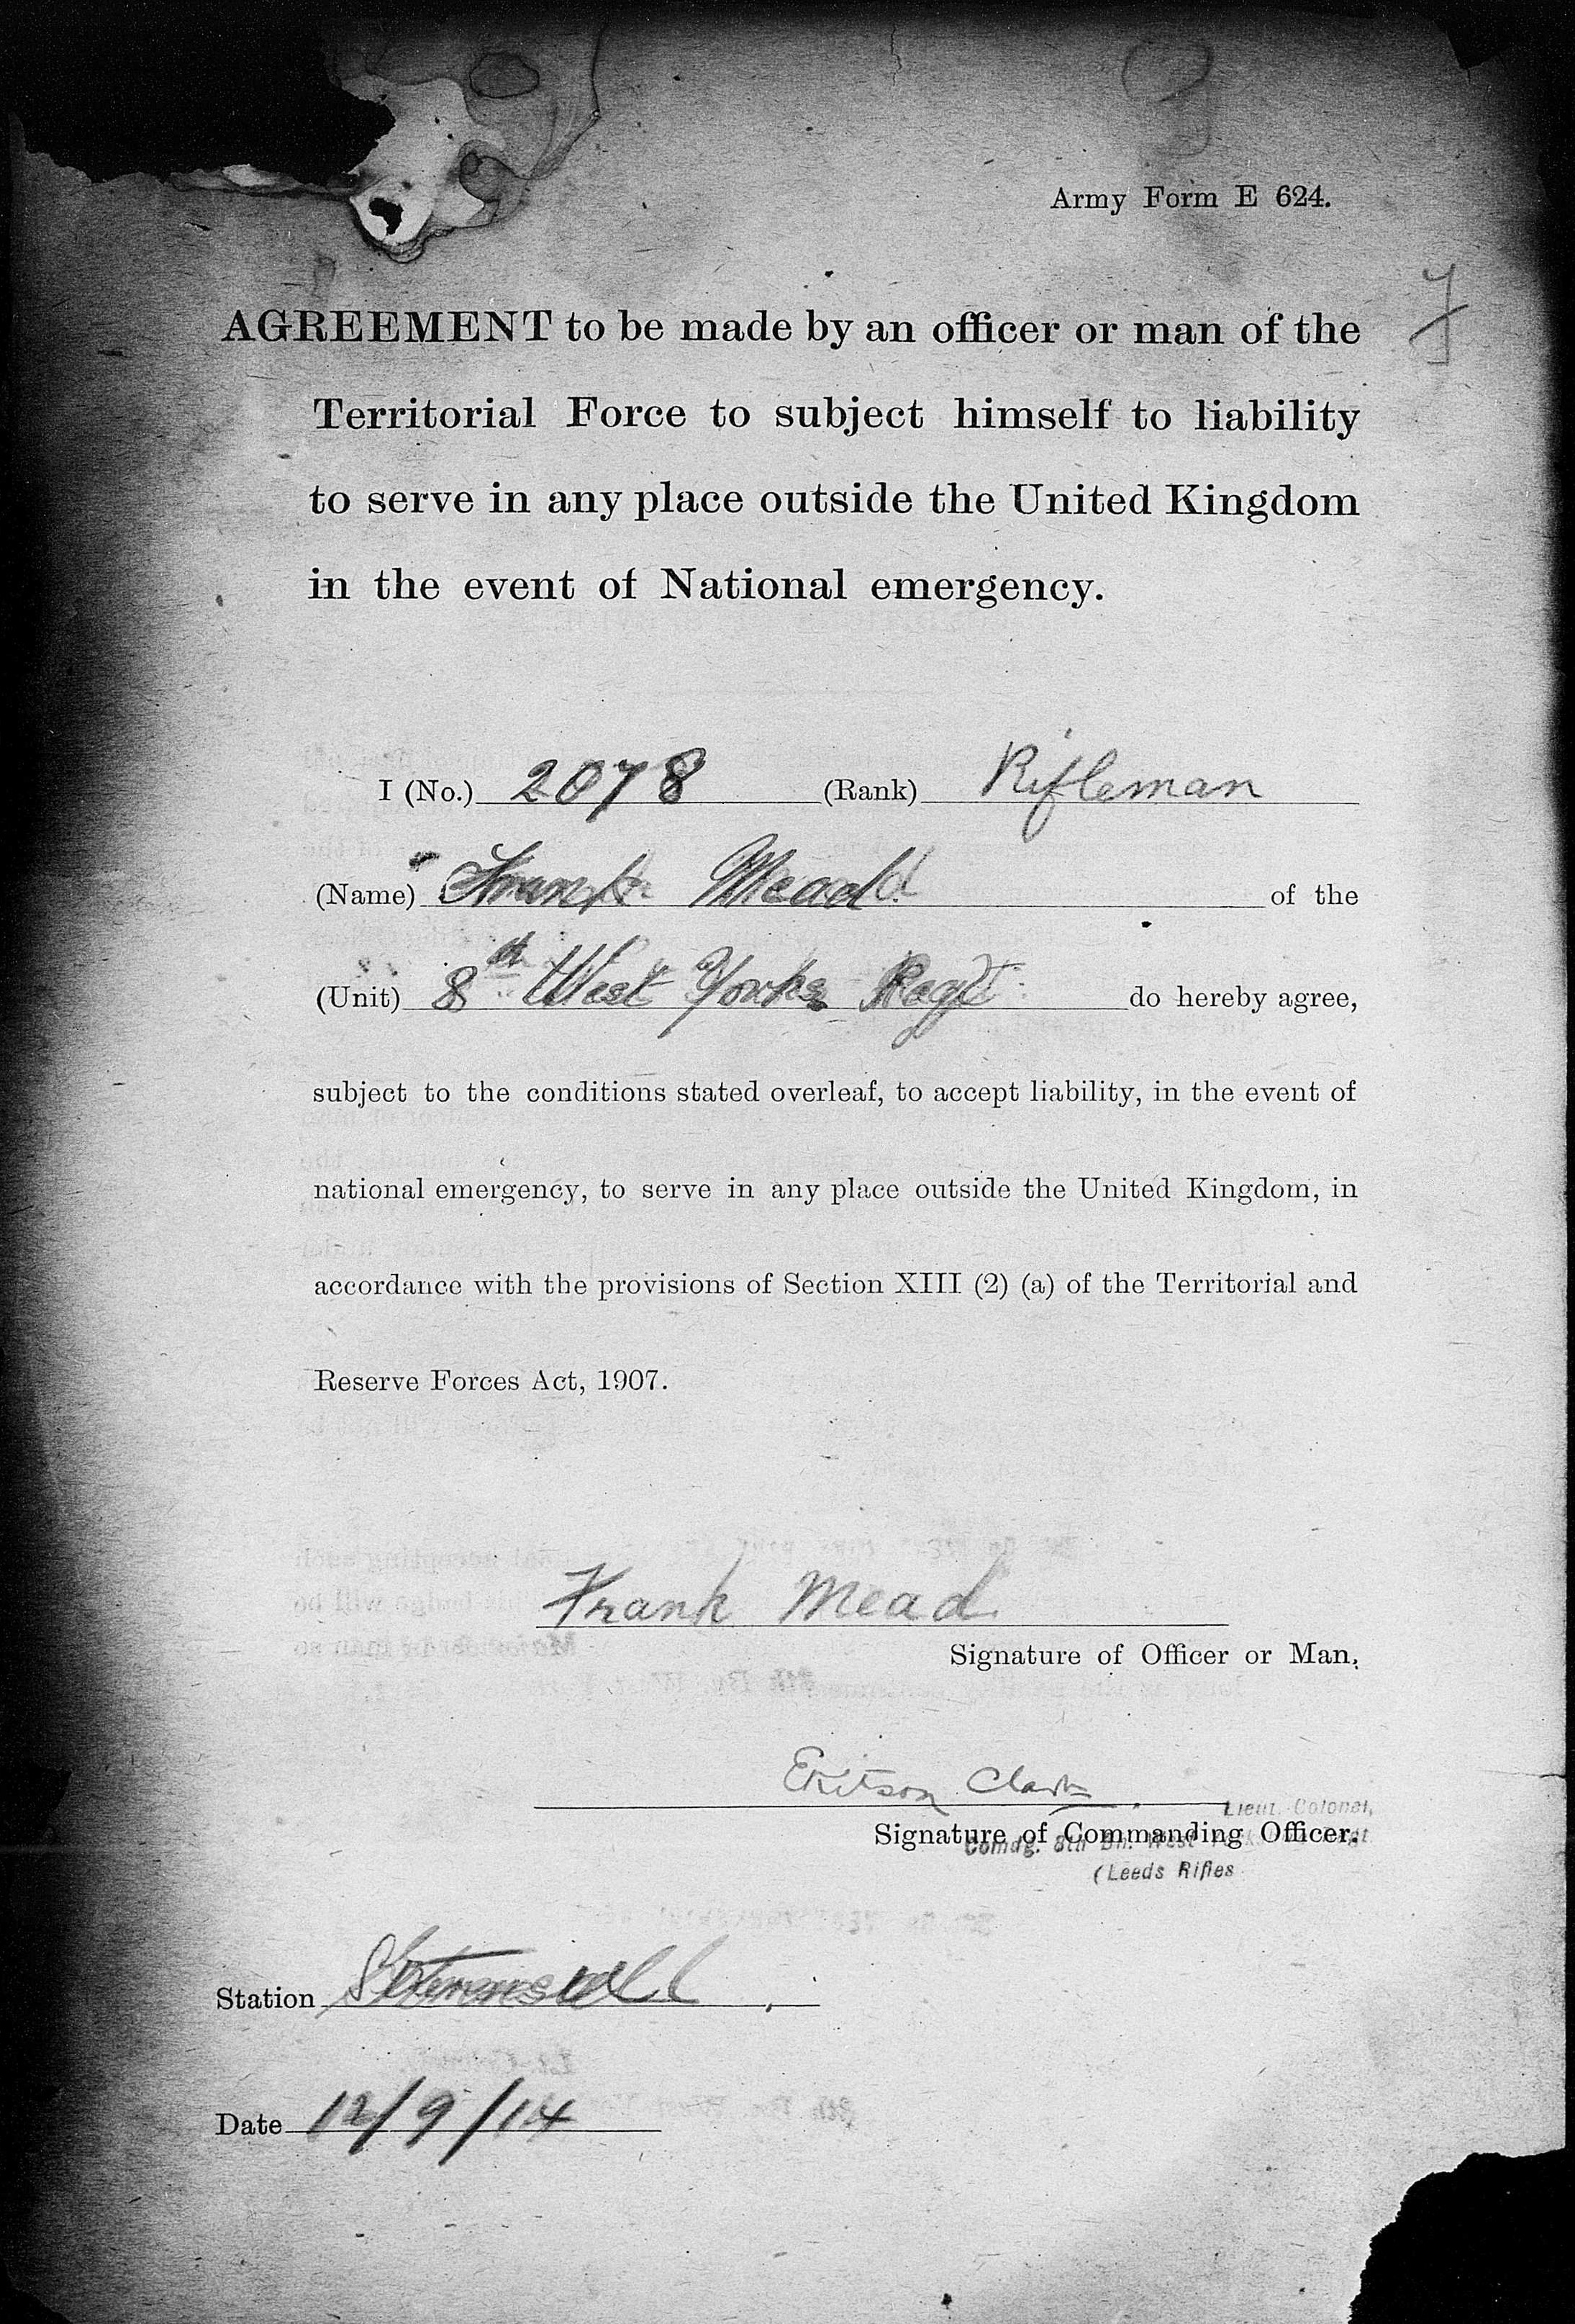 Army Form E 624.
AGREEMENT to be made by an officer or man of the
Territorial Force to subject himself to liability
to serve in any place outside the United Kingdom
in the event of National emergency.
I (No.) 2078 (Rank) Rifleman
(Name) Frank Mead of the
(Unit) 8th West Yorks Regt do hereby agree,
subject to the conditions stated overleaf, to accept liability, in the event of
national emergency, to serve in any place outside the United Kingdom, in
accordance with the provisions of Section XIII (2) (a) of the Territorial and
Reserve Forces Act, 1907.
Frank Mead
Signature of Officer or Man.
EKitson Clark
Lieut. Colonel,
Signature of Commanding Officer.
Comdg. 8th Bn. West
(Leeds Rifles
Station
Date 12/9/14